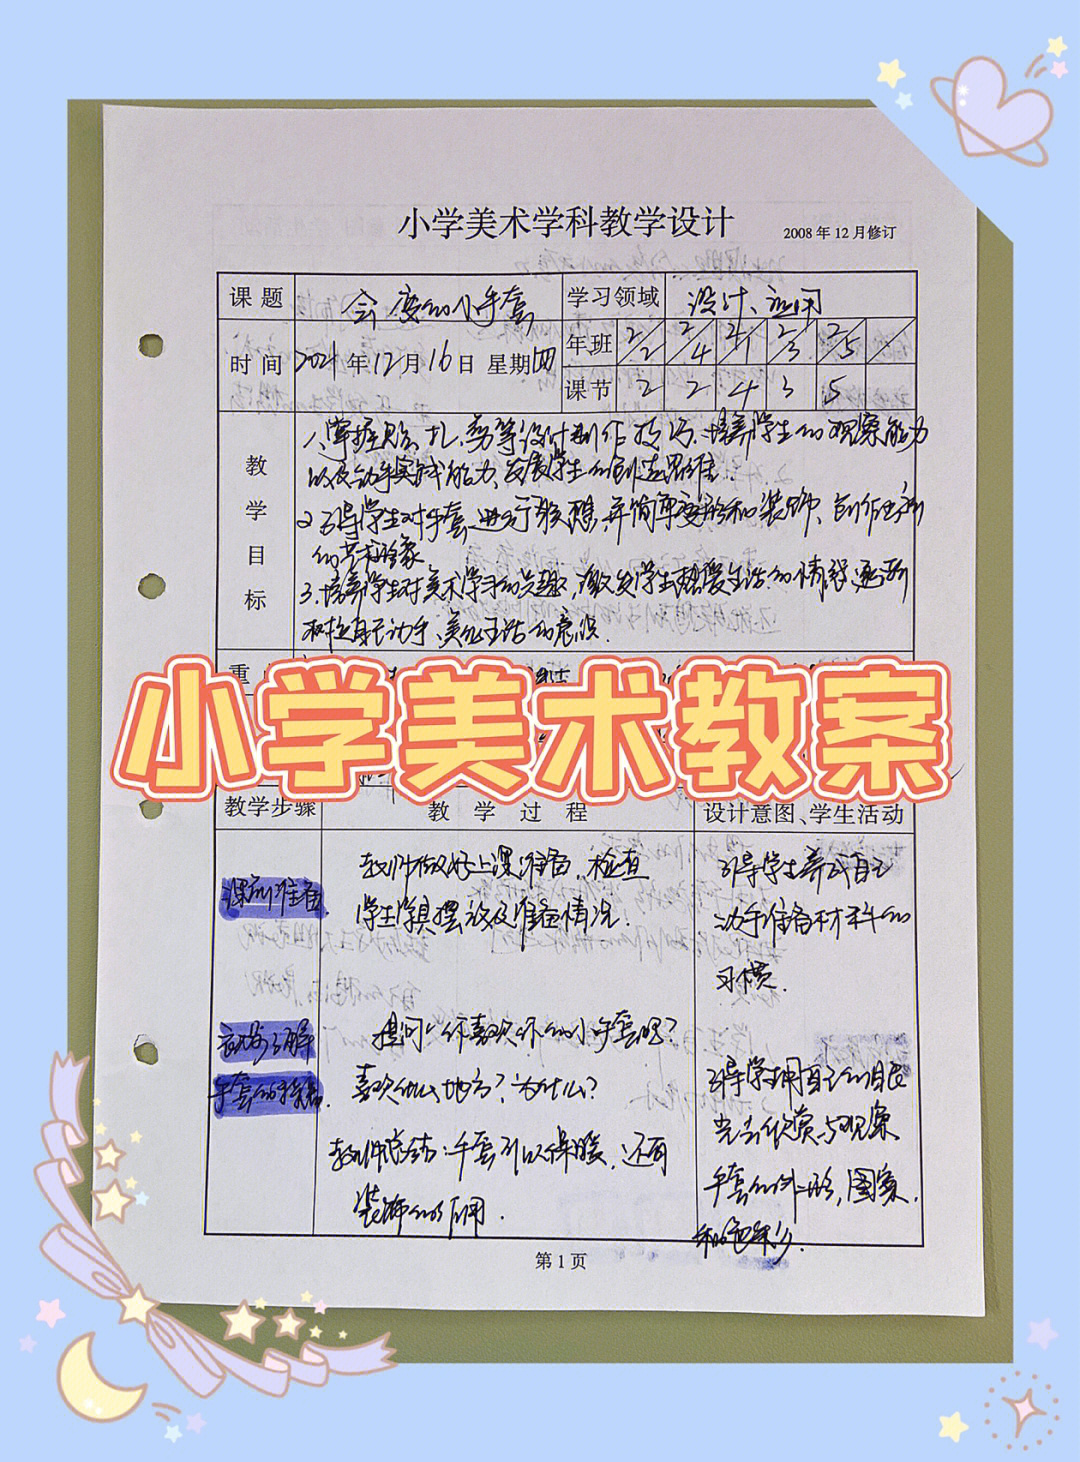 小学美术学科教学设计
2008年12月修订
课题 会变的小手套 学习领域 设计、应用
时间 2021年12月16日 星期四 年班 2/2 2/4 2/1 2/3 2/5 /
课节 2 2 4 3 5
教学目标
1、掌握贴、扎、剪等设计制作技巧。培养学生的观察能力
以及动手实践能力、发展学生的创造思维.
2、引导学生对手套进行联想,并简单变形和装饰、创作出新
的艺术形象
3、培养学生对美术学习的兴趣,激发学生热爱生活的情感,逐渐
树立自己动手、美化生活的意识.
重
小学美术教案
教学步骤 教学过程 设计意图、学生活动
课前准备
教师做好上课准备,检查
学生学具摆放及准备情况.
引导学生养成自己
动手准备材料的
习惯.
欣赏了解
手套的特点.
提问:你喜欢你的小手套吗?
喜欢什么地方?为什么?
教师总结:手套可以保暖,还有
装饰的作用.
引导学生用自己的眼
光去欣赏与观察
手套的外形,图案,
和色彩.
第1页